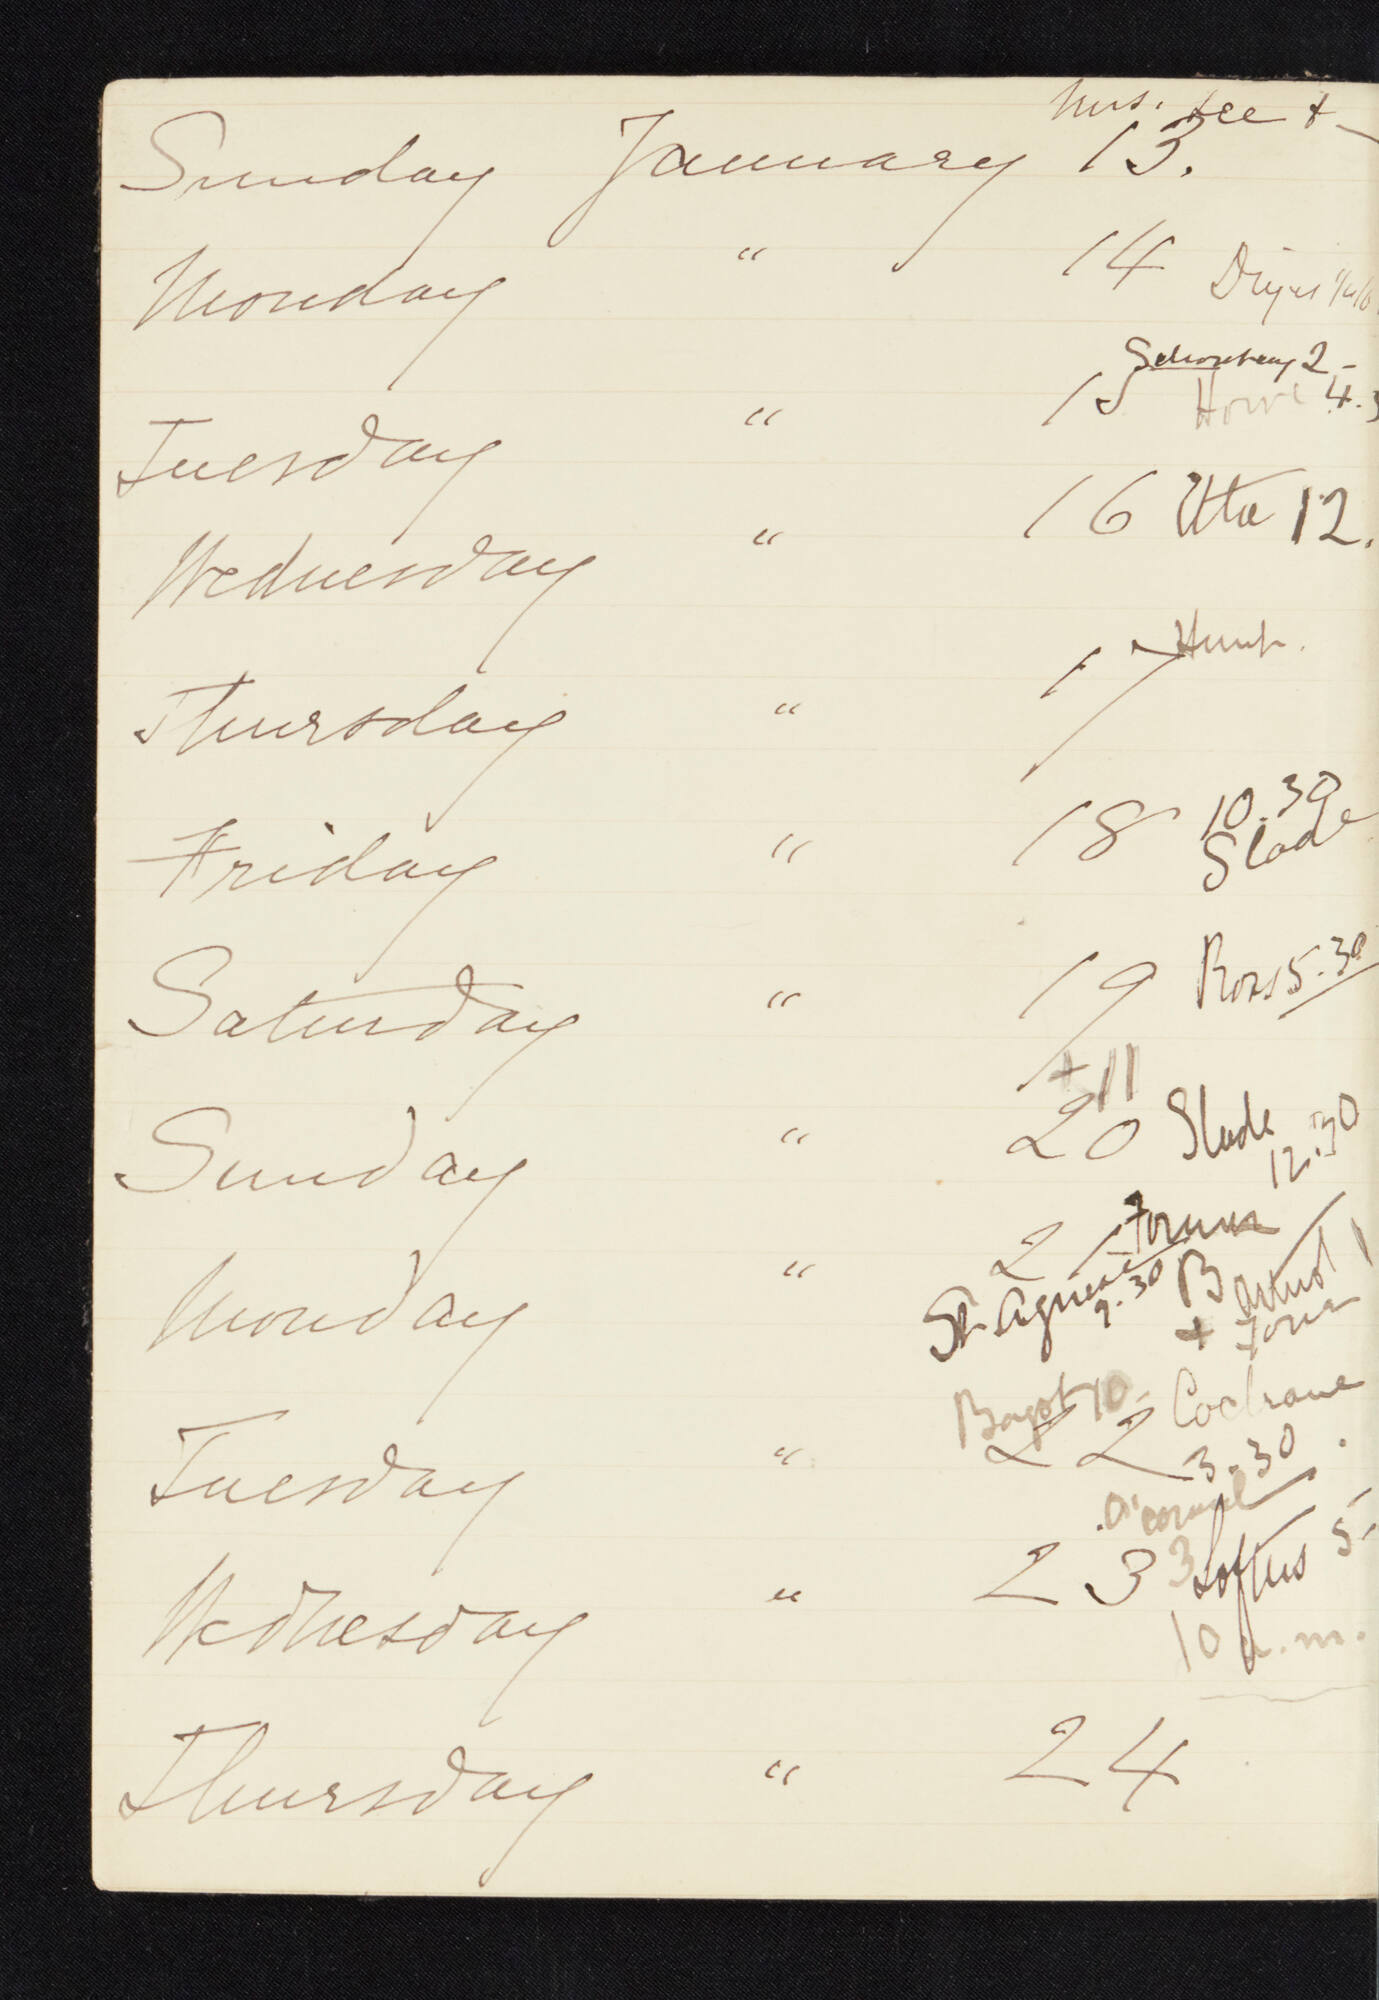 Mrs. Lee +
Sunday January 13.
Monday " 14
2 -
Tuesday " 15 Howe 4.3
Wednesday " 16 Etta 12.
Thursday " 17 Hunt.
10.30
Friday " 18 Slade
Saturday " 19 Ross 5.30
+ 11
Sunday " 20 Slade
12.30
Monday " 21
St. Agnese
9.30
+
Bagot 10 - Cochrane
Tuesday " 22 3.30
Wednesday " 23 3 Loftus 5
10 a.m.
Thursday " 24